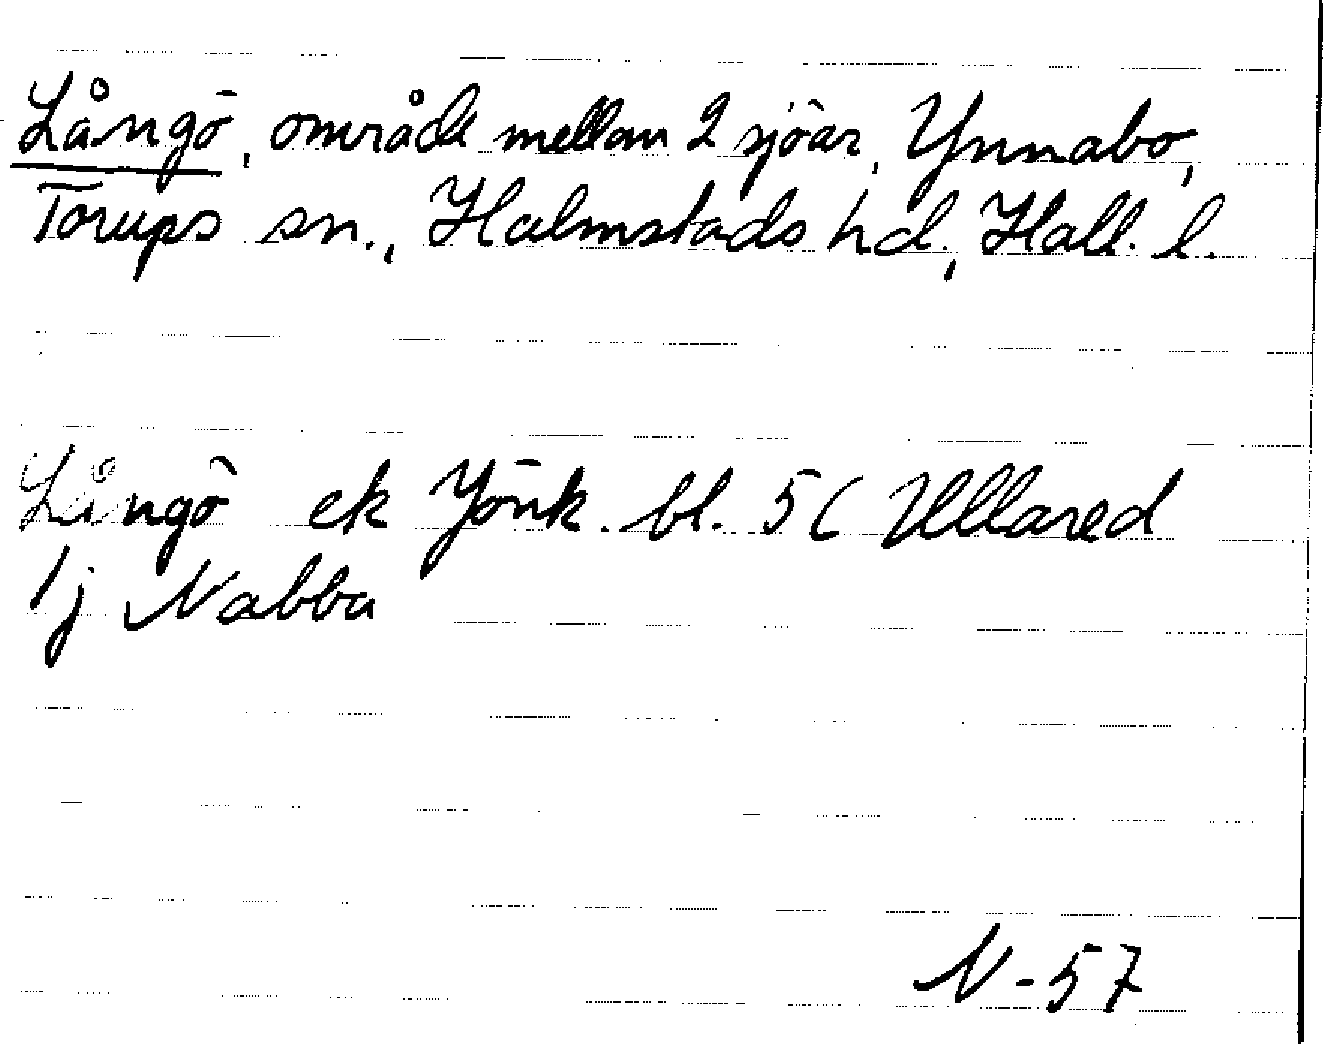 Långö, område mellan 2 sjöar, Ynnabo,
Torups sn., Halmstads hd, Hall. l.
Långö ek Jönk. bl. 5C Ullared
1j Nabba
N-57